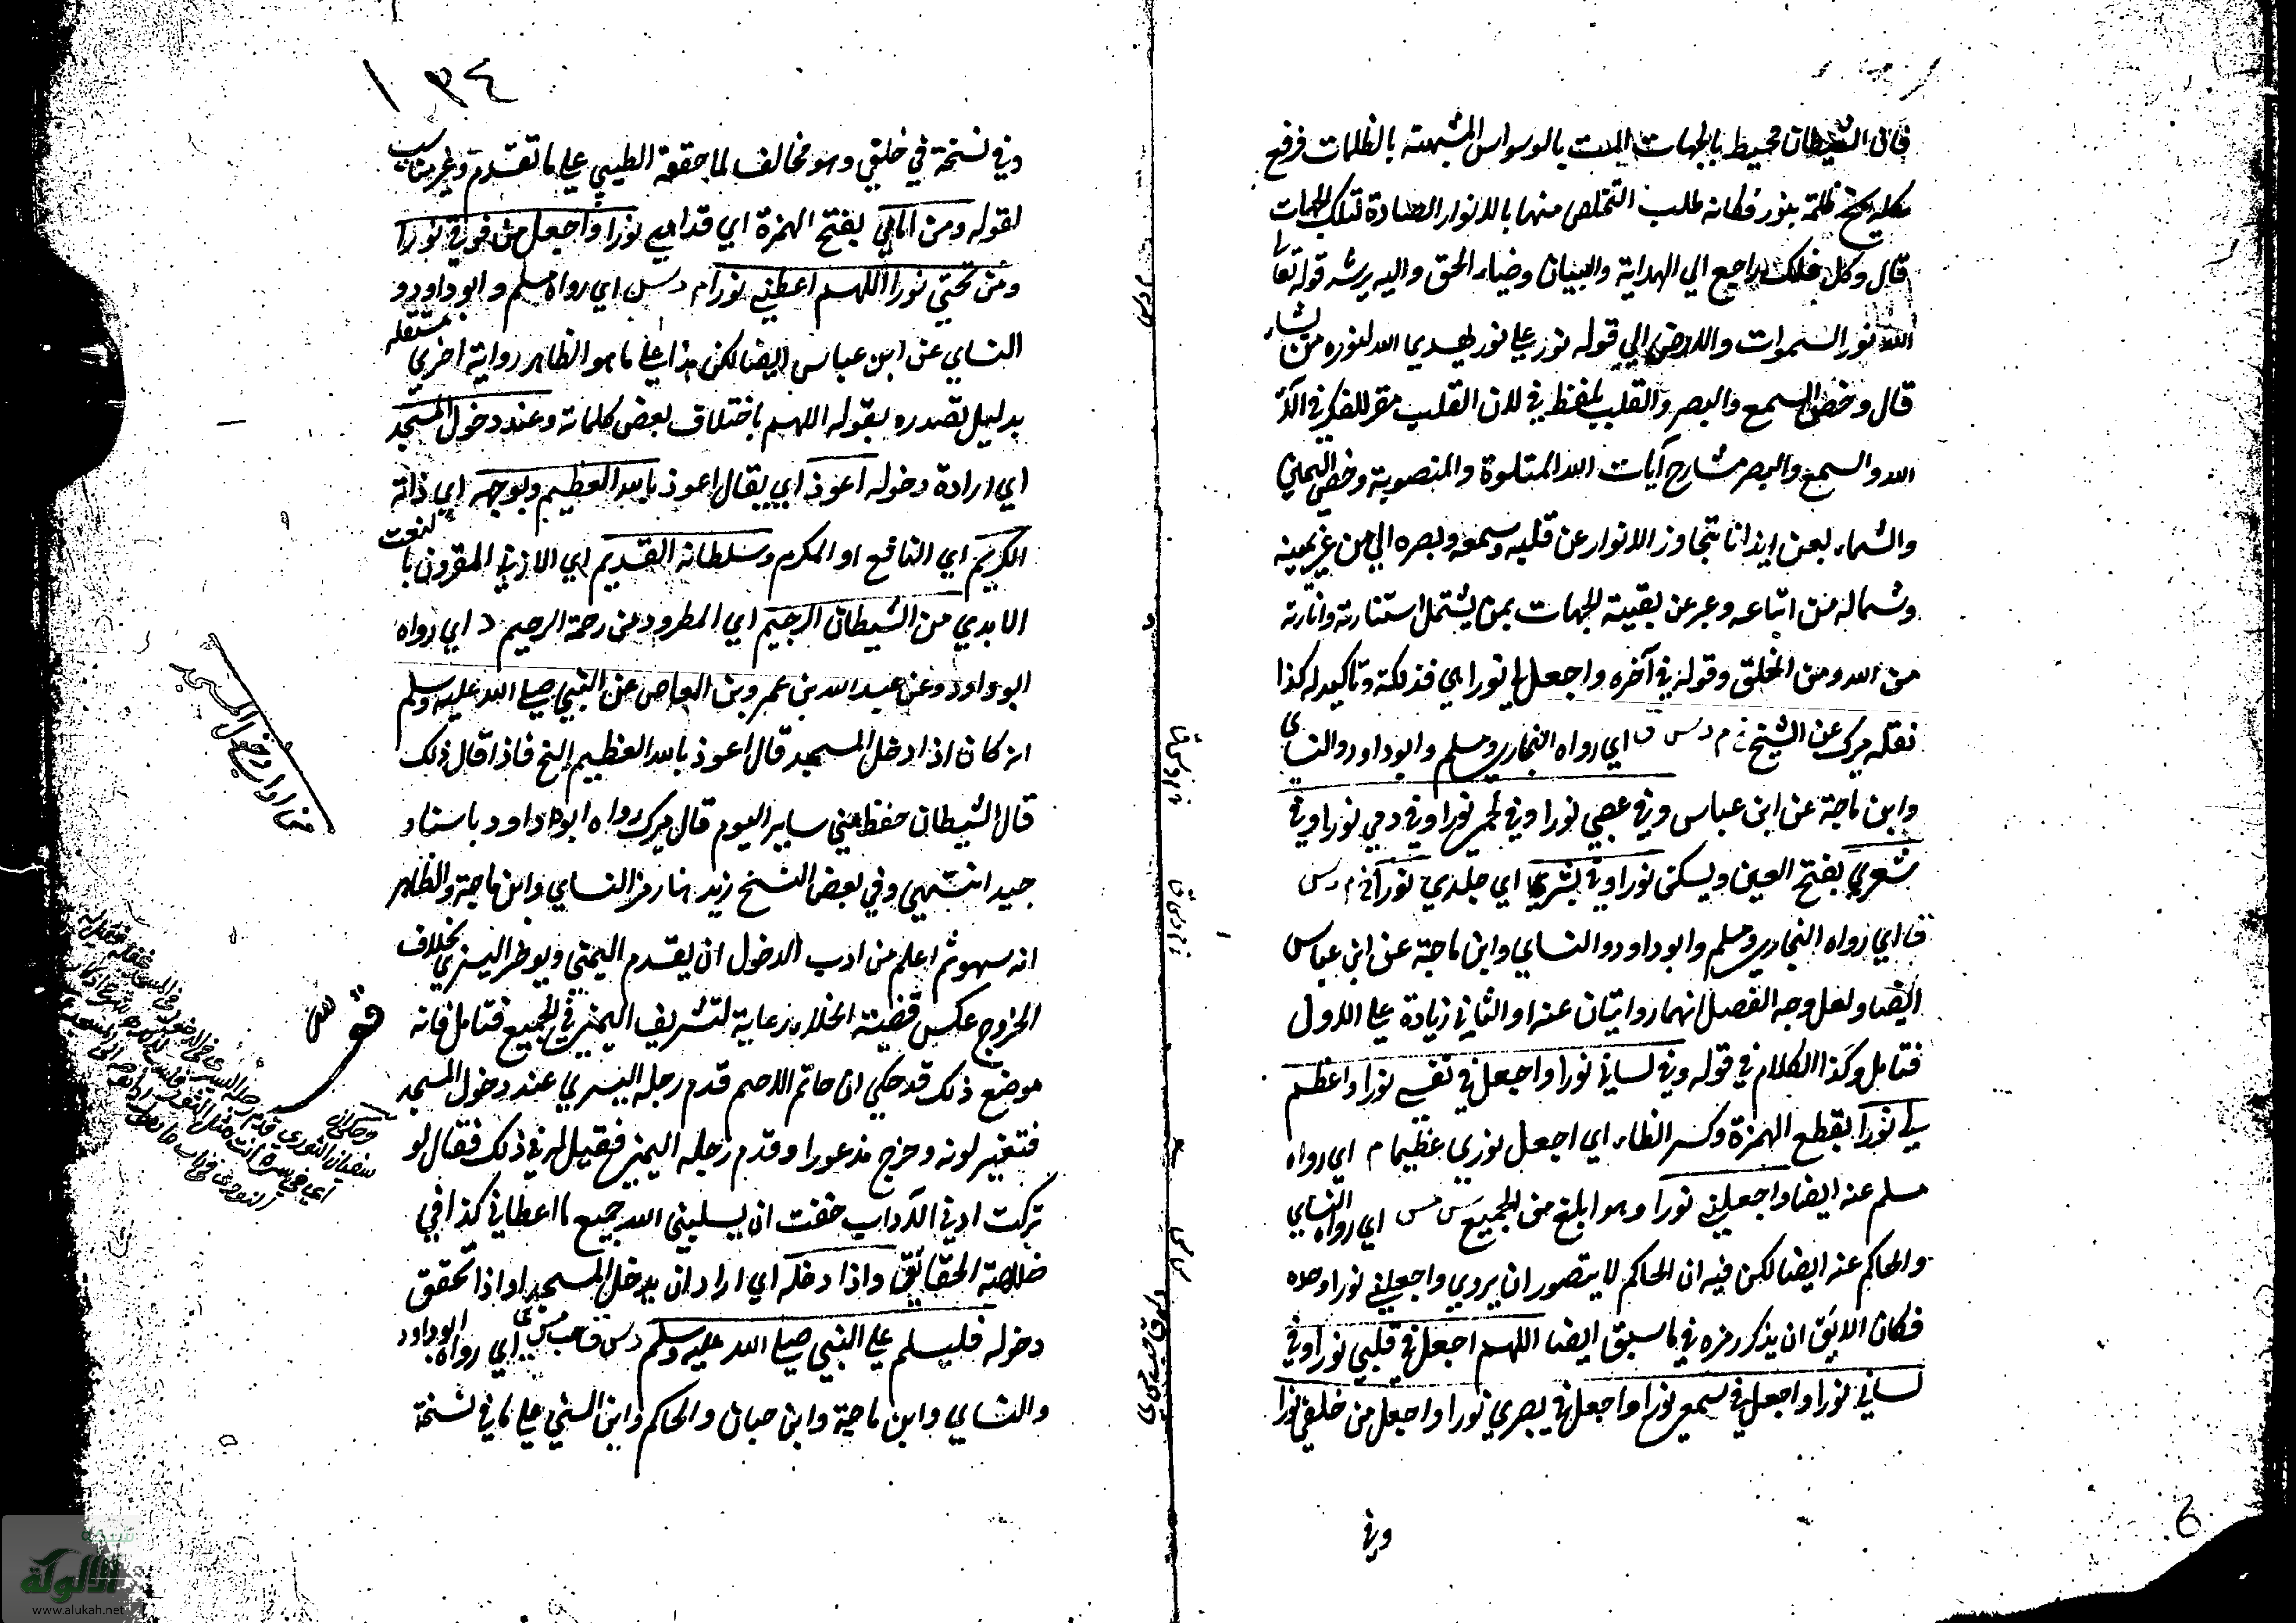 فان الشيطان محيط بالجهات الست بالوسواس المشبهة بالظلمات فرفع
كل ظلمة بنور فكانه طلب التخلص منها بالانوار الصادة لتلك الجهات
قال وكل ذلك راجع الي الهداية والبيان وضياء الحق واليه يرشد قوله تعالي
الله نور السموات والارض الي قوله نور علي نور يهدي الله لنوره من يشاء
قال وخص السمع والبصر والقلب بلفظ في لان القلب مقر للفكر في آلاء
الله والسمع والبصر مشارح آيات الله المتلوة والمنصوبة وخص اليمين
والشمال بعن ايذانا بتجاوز الانوار عن قلبه وسمعه وبصره الي من عن يمينه
وشماله من اتباعه وعبر عن بقية الجهات بمن ليشتمل استنارته وانارته
من الله ومن الخلق وقوله في آخره واجعل لي نورا هي فذلكة وتاكيد له كذا
نقله ميرك عن الشيخ خ م د س ق اي رواه البخاري ومسلم وابو داود والنساي
وابن ماجة عن ابن عباس وفي عصبي نورا وفي لحمي نورا وفي دمي نورا وفي
شعري بفتح العين ويسكن نورا وفي بشري اي جلدي نورا خ م د س
ق اي رواه البخاري ومسلم وابو داود والنساي وابن ماجة عن ابن عباس
ايضا ولعل وجه الفصل انهما روايتان عنه او الثاني زيادة علي الاول
فتامل وكذا الكلام في قوله وفي لساني نورا واجعل في نفسي نورا واعظم
لي نورا بقطع الهمزة وكسر الظاء اي اجعل نوري عظيما م اي رواه
مسلم عنه ايضا واجعلني نورا وهو ابلغ من الجميع س مس اي رواه النساي
والحاكم عنه ايضا لكن فيه ان الحاكم لا يتصور ان يروي واجعلني نورا وحده
فكان الاليق ان يذكر رمزه في ما سبق ايضا اللهم اجعل في قلبي نورا وفي
لساني نورا واجعل في سمعي نورا واجعل في بصري نورا واجعل من خلفي نورا
وفي
١٣٤
وفي نسخة في خلفي وهو مخالف لما حققه الطيبي علي ما تقدم وغير مناسب
لقوله ومن امامي بفتح الهمزة اي قدامي نورا واجعل من فوقي نورا
ومن تحتي نورا اللهم اعطني نورا م د س اي رواه مسلم وابو داود و
النساي عن ابن عباس ايضا لكن هذا علي ما هو الظاهر رواية اخري مستقله
بدليل تصدره بقوله اللهم باختلاف بعض كلماته وعند دخول المسجد
اي ارادة دخوله اعوذ اي يقال اعوذ بالله العظيم وبوجهه اي ذاته
الكريم اي النافع او المكرم وسلطانه القديم اي الازلي المقرون بالنعت
الابدي من الشيطان الرجيم اي المطرود من رحمة الرحيم د اي رواه
ابو داود وعن عبد الله بن عمرو بن العاص عن النبي صلي الله عليه وسلم
انه كان اذا دخل المسجد قال اعوذ بالله العظيم الخ فاذا قال ذلك
قال الشيطان حفظ مني ساير اليوم قال ميرك رواه ابو داود باسناد
جيد انتهي وفي بعض النسخ زيد هنا رمز النساي وابن ماجة والظاهر
انه سهو ثم اعلم من ادب الدخول ان يقدم اليمني ويوخر اليسري بخلاف
الخروج عكس قضية الخلاء رعاية لتشريف اليمني في الجميع فتامل فانه
موضع ذلك قد حكي ان حاتم الاصم قدم رجله اليسري عند دخول المسجد
فتغير لونه وخرج مذعورا وقدم رجله اليمني فقيل له في ذلك فقال لو
تركت ادني الآداب خفت ان يسلبني الله جميع ما اعطاني كذا في
خلاصة الحقائق واذا دخله اي اراد ان يدخل المسجد او اذا تحقق
دخوله فليسلم علي النبي صلي الله عليه وسلم د س ق حب مس ي اي رواه ابو داود
والنساي وابن ماجة وابن حبان والحاكم وابن السني علي ما في نسخة
www.alukah.net
الألوكة